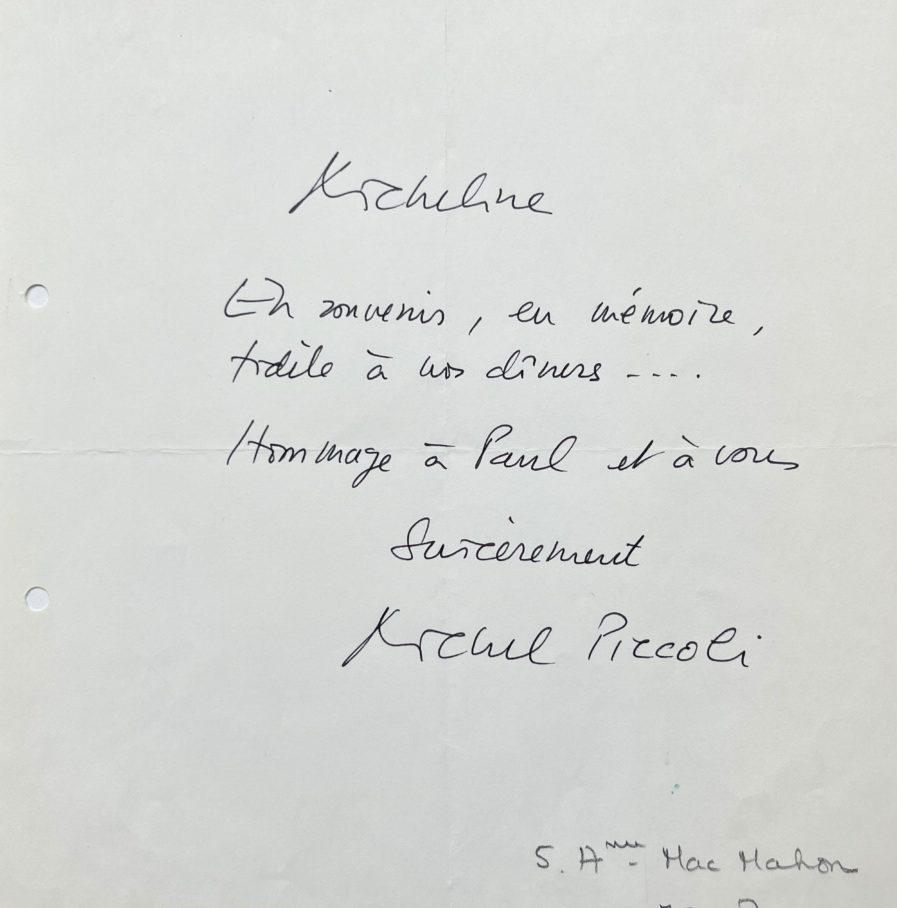 Micheline
En souvenir, en mémoire,
fidèle à nos dîners ....
Hommage à Paul et à vous
Sincèrement
Michel Piccoli
5. Anue Mac Mahon